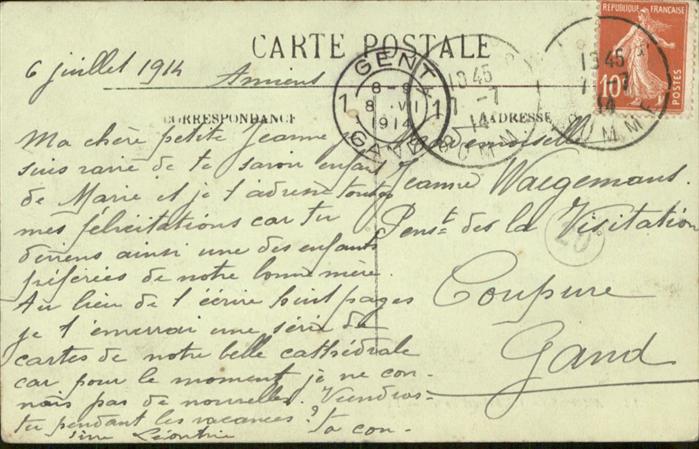 CARTE POSTALE
6 juillet 1914 Amiens
CORRESPONDANCE
ADRESSE
Ma chère petite Jeanne je
suis ravie de te savoir enfant
de Marie et je t'adresse toutes
mes félicitations car tu
deviens ainsi une des enfants
préférées de notre bonne mère.
Au lieu de t'écrire huit pages
je t'enverrai une série de
cartes de notre belle cathédrale
car pour le moment je ne con-
nais pas de nouvelles. Viendras-
tu pendant les vacances? Ta cou-
sine Léontine
Mademoiselle
Jeanne Waegemans.
Pens.t des de la Visitation
Coupure
Gand
GENT
1 8-9 1
8 VII
1914
GAND
1345
7-7
14
SOMME
1345
7-7
14
SOMME
REPUBLIQUE FRANÇAISE
10c
POSTES
20